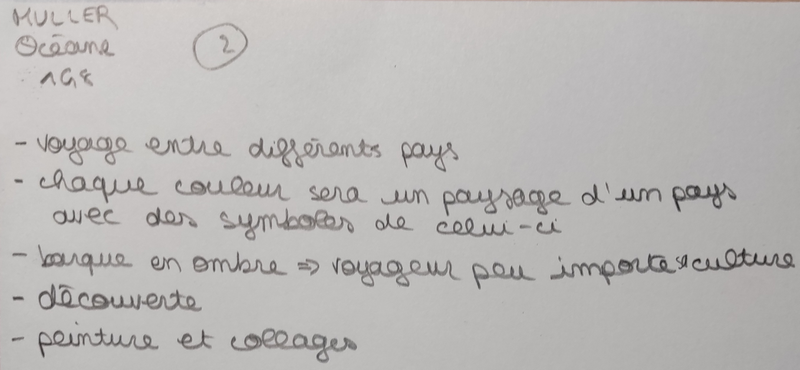 MULLER
Océane
2
1G8
- voyage entre différents pays
- chaque couleur sera un paysage d'un pays
avec des symboles de celui-ci
- barque en ombre => voyageur peu importe sa culture
- découverte
- peinture et collages